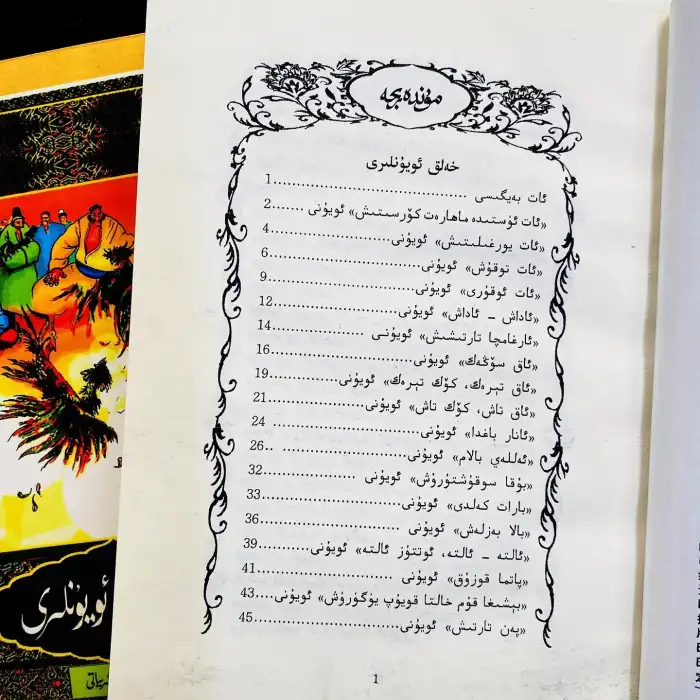 مۇندەرىجە
خەلق ئويۇنلىرى
ئات بەيگىسى ........................................1
«ئات ئۈستىدە ماھارەت كۆرسىتىش» ئويۇنى ..........2
«ئات يورغىلىتىش» ئويۇنى........................4
«ئات توقۇش» ئويۇنى.............................6
«ئات ئوقۇرى» ئويۇنى.............................9
«ئاداش - ئاداش» ئويۇنى.........................12
«ئارغامچا تارتىشىش» ئويۇنى ....................14
«ئاق سۆڭەك» ئويۇنى............................16
«ئاق تېرەك، كۆك تېرەك» ئويۇنى..................19
«ئاق تاش، كۆك تاش» ئويۇنى....................21
«ئانار باغدا» ئويۇنى..............................24
«ئەللەي بالام» ئويۇنى............................26
«بۇقا سوقۇشتۇرۇش» ئويۇنى ....................32
«بارات كەلدى» ئويۇنى...........................33
«بالا بەزلەش» ئويۇنى ...........................36
«ئالتە - ئالتە، ئوتتۇز ئالتە» ئويۇنى..............39
«پاتما قوزۇق» ئويۇنى ..........................41
«بېشىغا قۇم خالتا قويۇپ يۈگۈرۈش» ئويۇنى.......43
«پەن تارتىش» ئويۇنى...........................45
1
ئويۇنلىرى